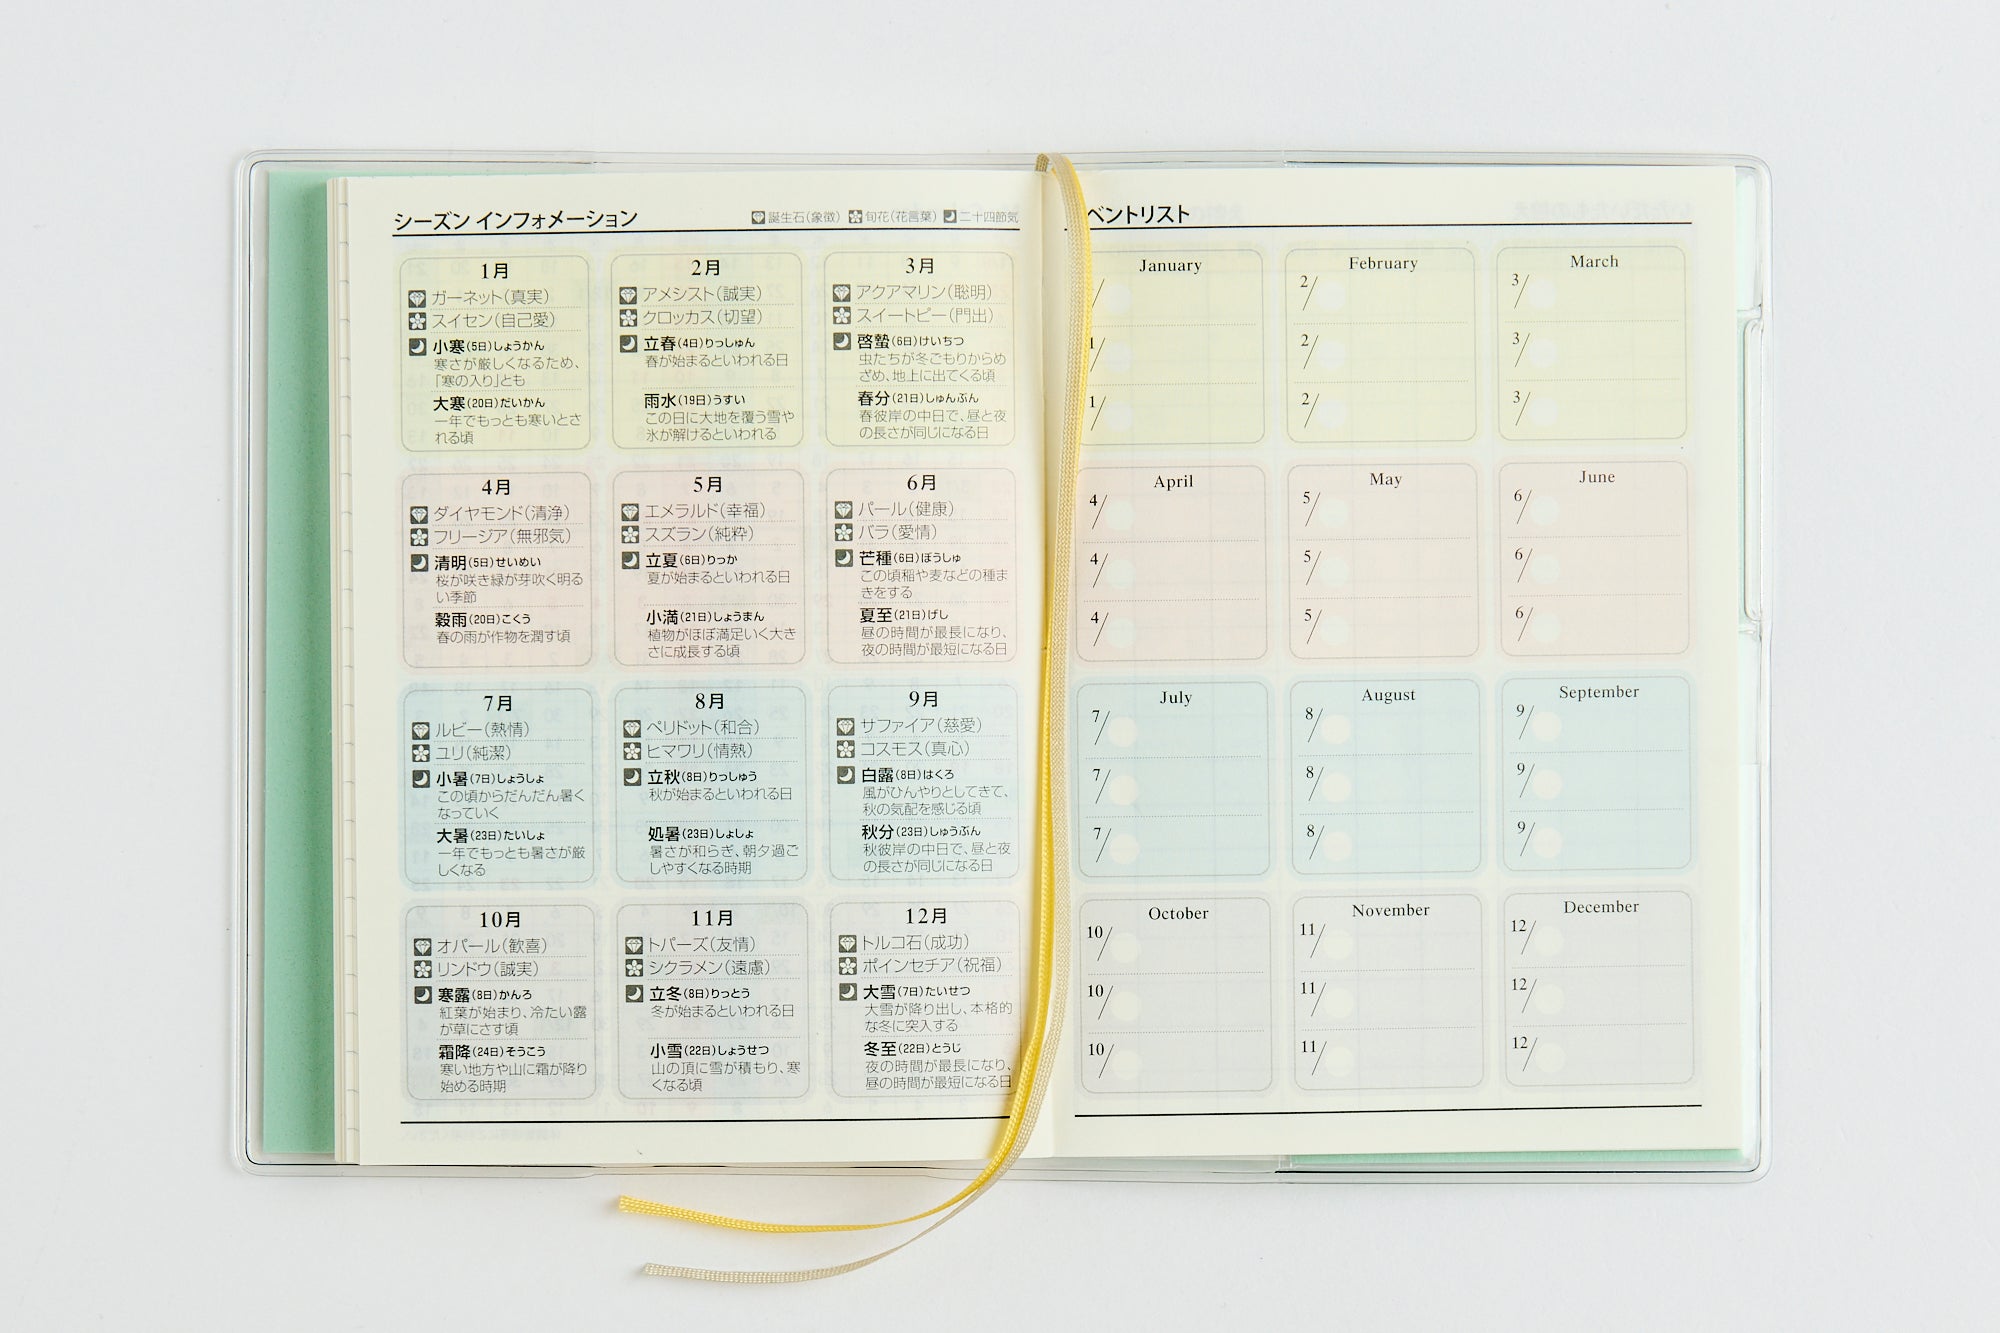 シーズン インフォメーション
誕生石(象徴) 旬花(花言葉) 二十四節気
1月
ガーネット(真実)
スイセン(自己愛)
小寒(5日)しょうかん
寒さが厳しくなるため、
「寒の入り」とも
大寒(20日)だいかん
一年でもっとも寒いとさ
れる頃
2月
アメシスト(誠実)
クロッカス(切望)
立春(4日)りっしゅん
春が始まるといわれる日
雨水(19日)うすい
この日に大地を覆う雪や
氷が解けるといわれる
3月
アクアマリン(聡明)
スイートピー(門出)
啓蟄(6日)けいちつ
虫たちが冬ごもりからめ
ざめ、地上に出てくる頃
春分(21日)しゅんぶん
春彼岸の中日で、昼と夜
の長さが同じになる日
4月
ダイヤモンド(清浄)
フリージア(無邪気)
清明(5日)せいめい
桜が咲き緑が芽吹く明る
い季節
穀雨(20日)こくう
春の雨が作物を潤す頃
5月
エメラルド(幸福)
スズラン(純粋)
立夏(6日)りっか
夏が始まるといわれる日
小満(21日)しょうまん
植物がほぼ満足いく大き
さに成長する頃
6月
パール(健康)
バラ(愛情)
芒種(6日)ぼうしゅ
この頃稲や麦などの種ま
きをする
夏至(21日)げし
昼の時間が最長になり、
夜の時間が最短になる日
7月
ルビー(熱情)
ユリ(純潔)
小暑(7日)しょうしょ
この頃からだんだん暑く
なっていく
大暑(23日)たいしょ
一年でもっとも暑さが厳
しくなる
8月
ペリドット(和合)
ヒマワリ(情熱)
立秋(8日)りっしゅう
秋が始まるといわれる日
処暑(23日)しょしょ
暑さが和らぎ、朝夕過ご
しやすくなる時期
9月
サファイア(慈愛)
コスモス(真心)
白露(8日)はくろ
風がひんやりとしてきて、
秋の気配を感じる頃
秋分(23日)しゅうぶん
秋彼岸の中日で、昼と夜
の長さが同じになる日
10月
オパール(歓喜)
リンドウ(誠実)
寒露(8日)かんろ
紅葉が始まり、冷たい露
が草にさす頃
霜降(24日)そうこう
寒い地方や山に霜が降り
始める時期
11月
トパーズ(友情)
シクラメン(遠慮)
立冬(8日)りっとう
冬が始まるといわれる日
小雪(22日)しょうせつ
山の頂に雪が積もり、寒
くなる頃
12月
トルコ石(成功)
ポインセチア(祝福)
大雪(7日)たいせつ
大雪が降り出し、本格的
な冬に突入する
冬至(22日)とうじ
夜の時間が最長になり、
昼の時間が最短になる日
ベントリスト
January
/
1/
1/
February
2/
2/
2/
March
3/
3/
3/
April
4/
4/
4/
May
5/
5/
5/
June
6/
6/
6/
July
7/
7/
7/
August
8/
8/
8/
September
9/
9/
9/
October
10/
10/
10/
November
11/
11/
11/
December
12/
12/
12/